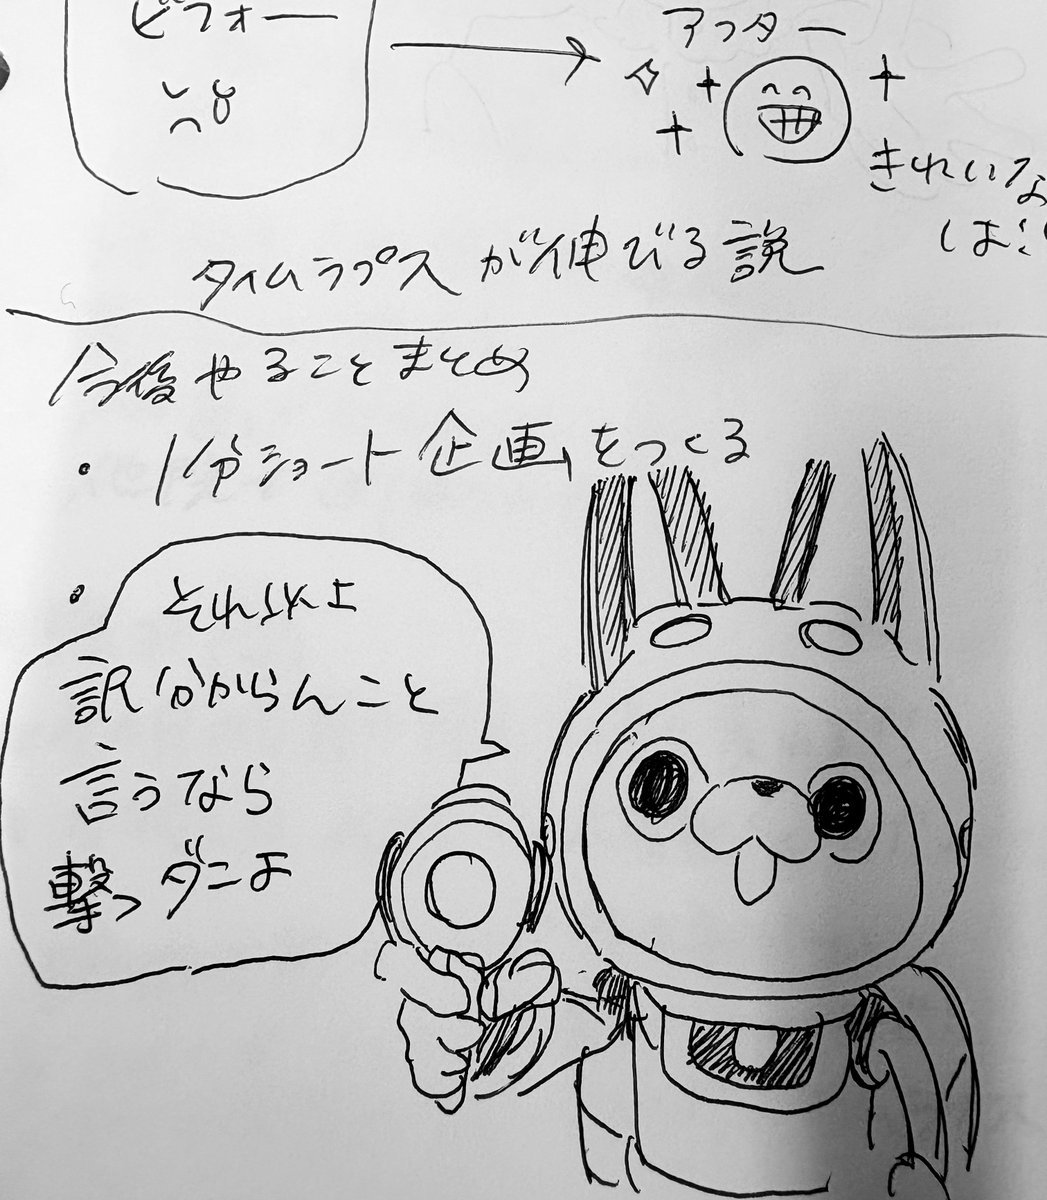 ビフォー
アフター
きれいな
タイムラプスが伸びる説
今後やることまとめ
・1分ショート企画をつくる
・
それ以上
訳分からんこと
言うなら
撃つダニよ